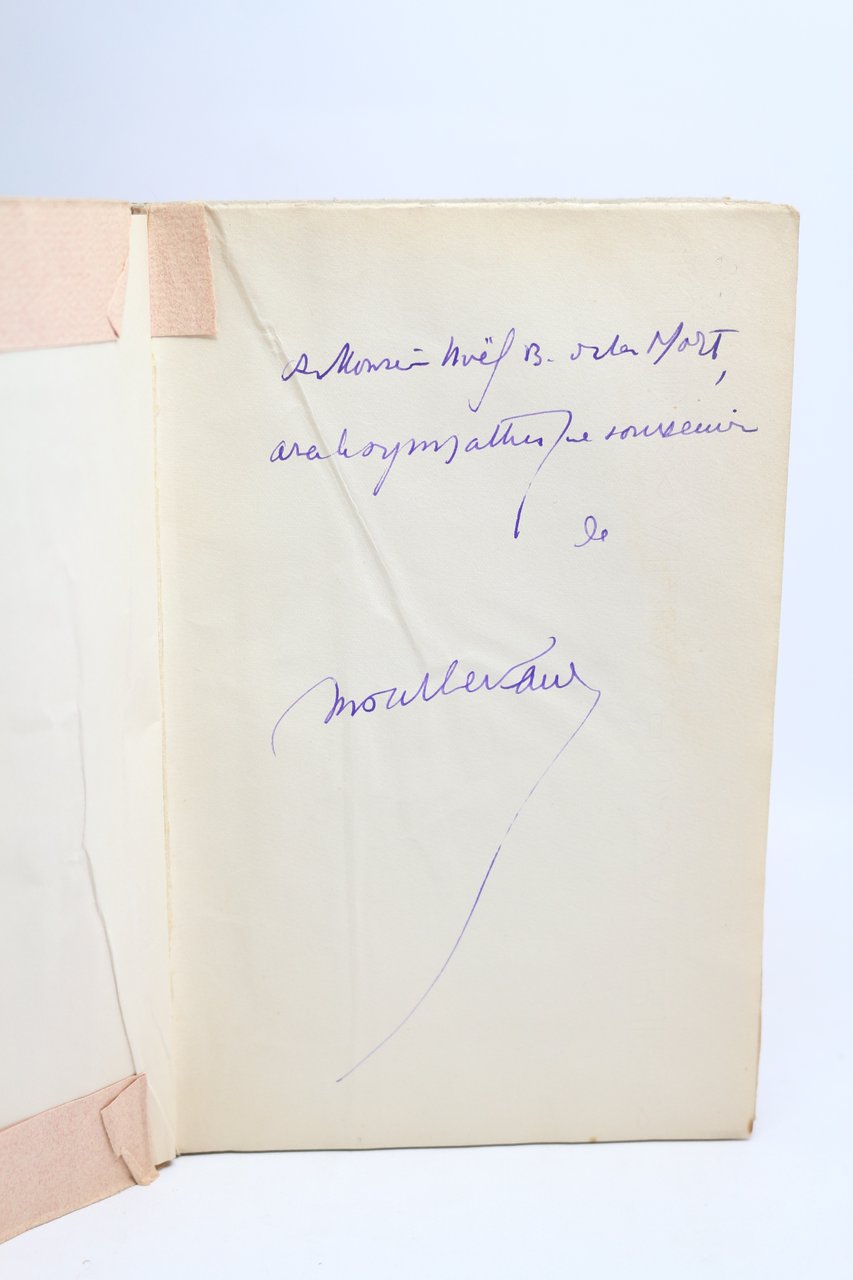 à Monsieur Noël B. de la Mort,
avec la sympathique souvenir
de
Montherlant